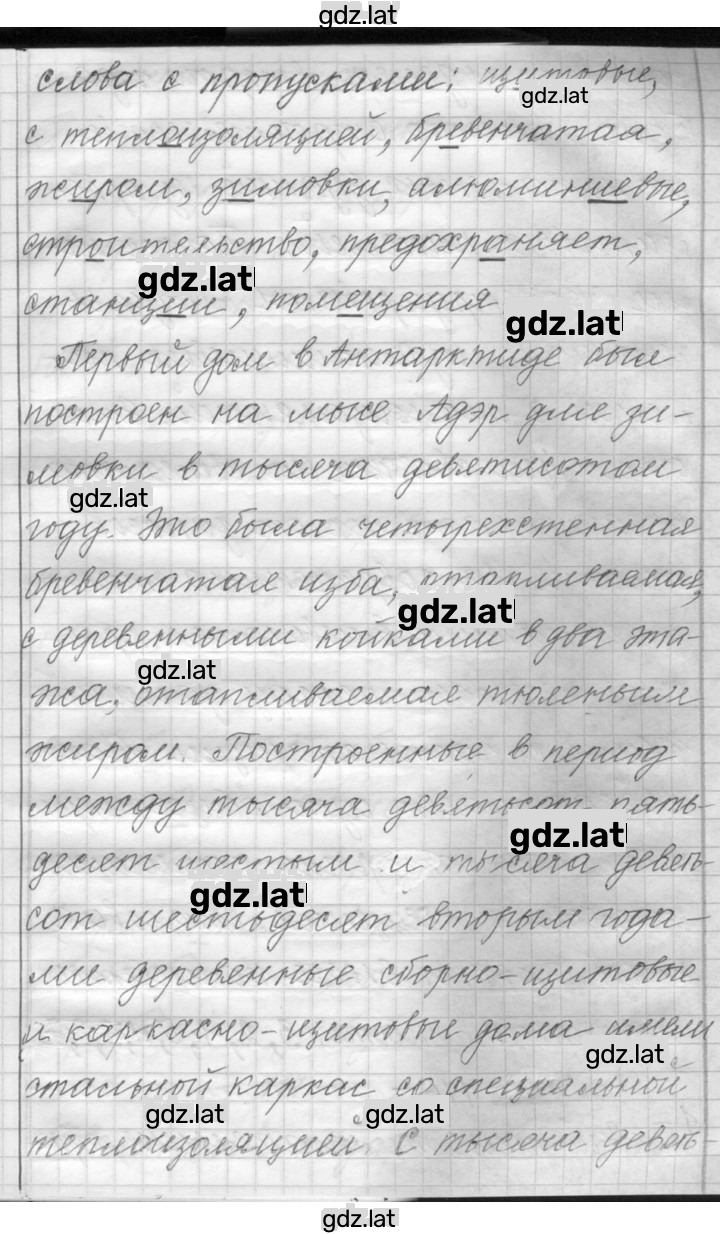 gdz.lat
слова с пропусками: щитовые,
gdz.lat
с теплоизоляцией, бревенчатая,
жиром, зимовки, алюминиевые,
строительство, предохраняет,
gdz.lat
станции, помещения
gdz.lat
Первый дом в Антарктиде был
построен на мысе Адэр для зи-
мовки в тысяча девятисотом
gdz.lat
году. Это была четырехстенная
бревенчатая изба, отапливаемая,
gdz.lat
с деревянными койками в два эта-
gdz.lat
жа, отапливаемая тюленьим
жиром. Построенные в период
между тысяча девятьсот пять-
gdz.lat
десят шестым и тысяча девять-
gdz.lat
сот шестьдесят вторым года-
ми деревянные сборно-щитовые
и каркасно-щитовые дома имели
gdz.lat
стальной каркас со специальной
gdz.lat gdz.lat
теплоизоляцией. С тысяча девять-
gdz.lat